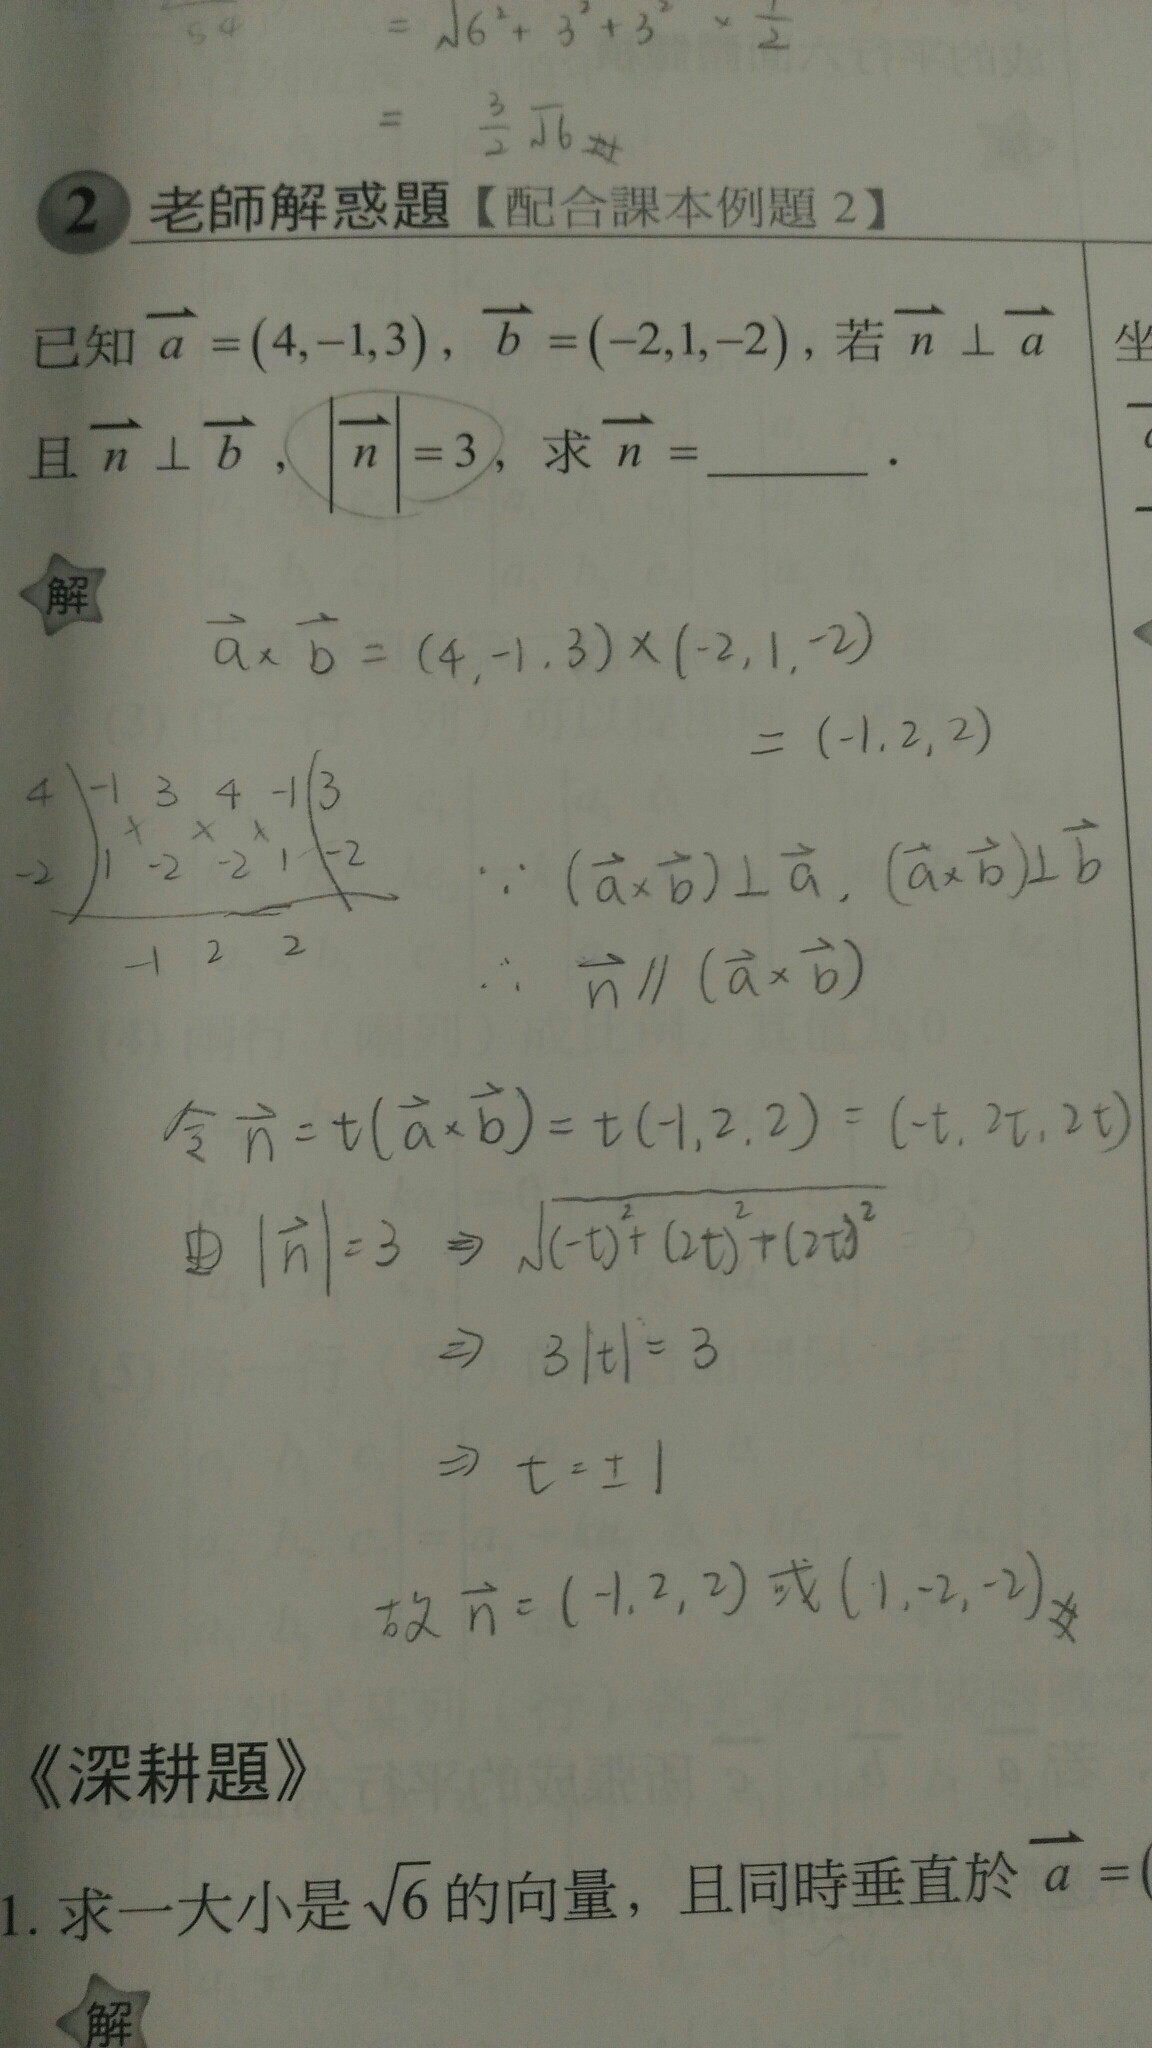 54
= √6²+3²+3² × 1/2
= 3/2 √6
2 老師解惑題【配合課本例題 2】
已知 a⃑ = (4,−1,3),b⃑ = (−2,1,−2),若 n⃑ ⊥ a⃑
且 n⃑ ⊥ b⃑,|n⃑| = 3,求 n⃑ = ______.
解
a⃑ × b⃑ = (4,-1,3) × (-2,1,-2)
= (-1,2,2)
4 -1 3 4 -1 3
-2 1 -2 -2 1 -2
-1 2 2
∵ (a⃑×b⃑)⊥a⃑, (a⃑×b⃑)⊥b⃑
∴ n⃑ // (a⃑×b⃑)
令 n⃑ = t(a⃑×b⃑) = t(-1,2,2) = (-t,2t,2t)
由 |n⃑| = 3 ⇒ √(-t)²+(2t)²+(2t)²
⇒ 3|t| = 3
⇒ t = ±1
故 n⃑ = (-1,2,2) 或 (1,-2,-2)
《深耕題》
1. 求一大小是 √6 的向量,且同時垂直於 a⃑ = (
解
坐